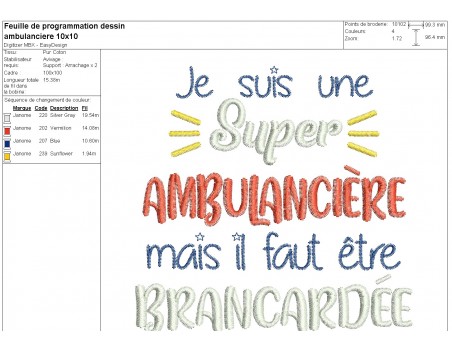 Feuille de programmation dessin
ambulanciere 10x10
Digitizer MBX - EasyDesign
Points de broderie: 18102
99.0 mm
Couleurs: 4
96.4 mm
Zoom: 1.72
Tissu: Pur Coton
Stabilisateur requis: Avivage
Support : Arrachage x 2
Cadre 100x100
Longueur totale de fil dans la bobine 15.38m
Séquence de changement de couleur:
Marque Code Description Fil
Janome 220 Silver Gray 19.54m
Janome 202 Vermilion 14.08m
Janome 207 Blue 10.60m
Janome 239 Sunflower 1.94m
Je suis une
Super
AMBULANCIÈRE
mais il faut être
BRANCARDÉE